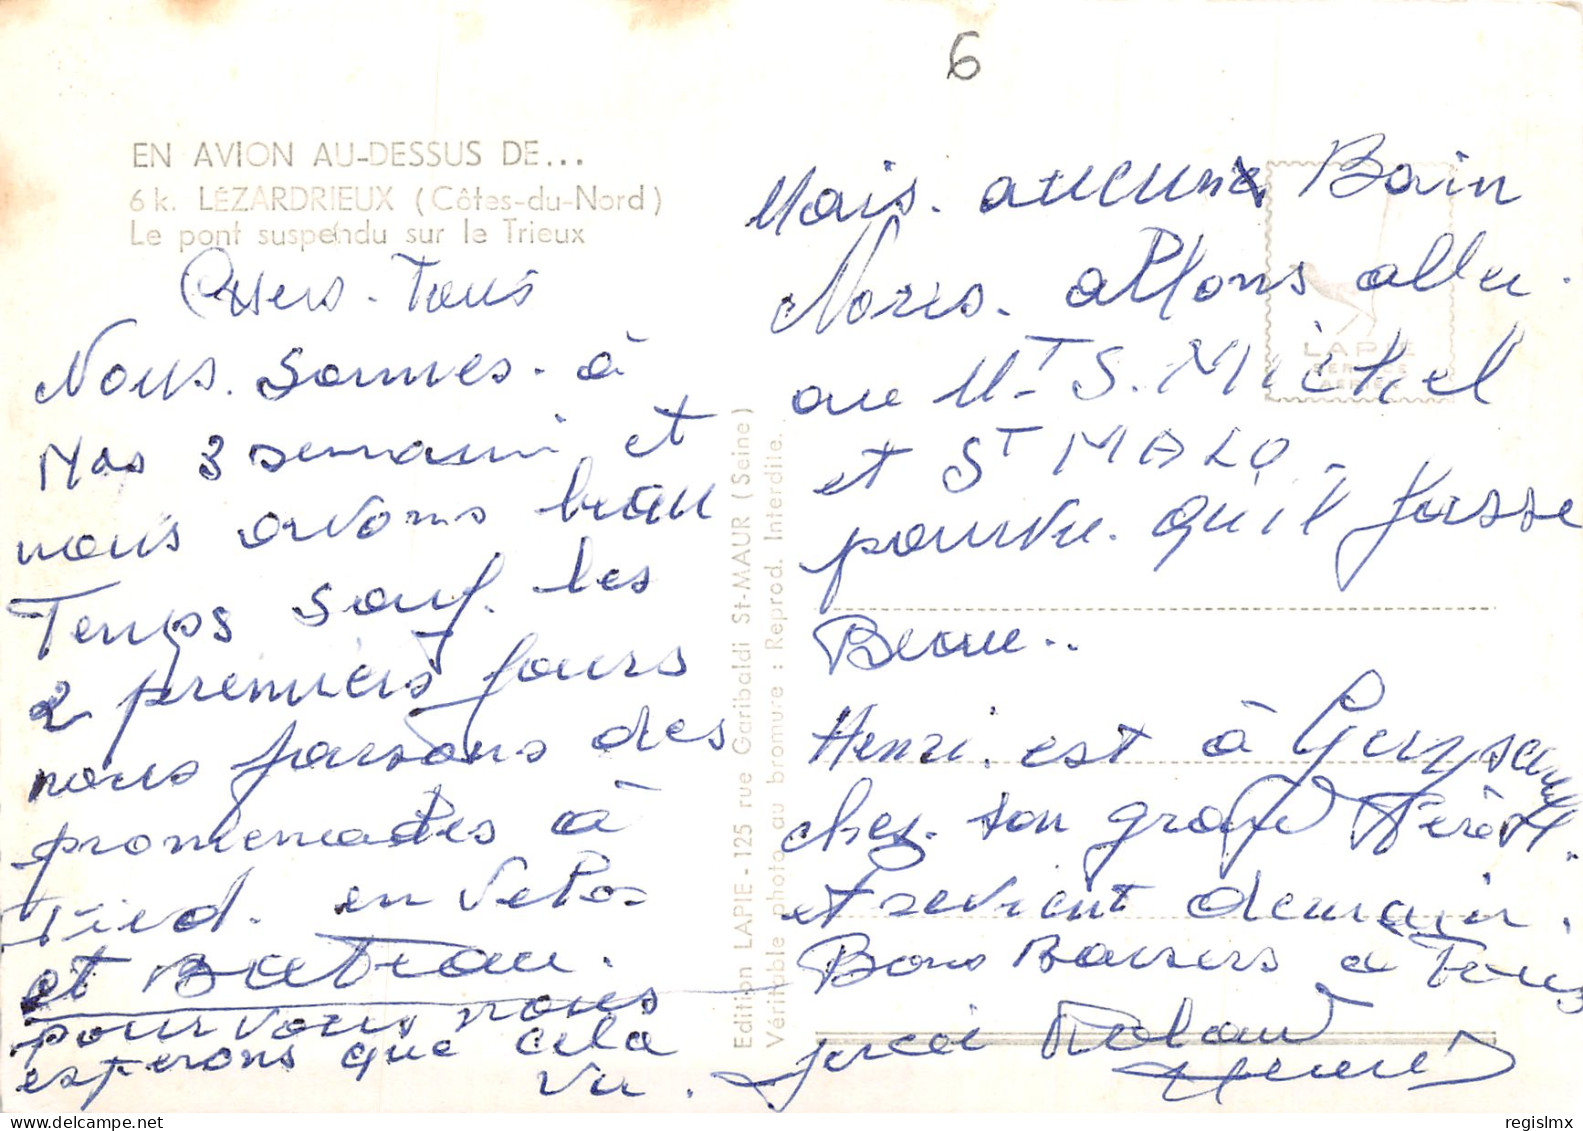 6
EN AVION AU-DESSUS DE...
6 k. LÉZARDRIEUX (Côtes-du-Nord)
Le pont suspendu sur le Trieux
Chers. Tous
Nous. sommes. à
Nos 3 semaine et
nous avons beau
Temps sauf. les
2 premiers jours
nous faisons des
promenades à
Pied. en Velos
et Bateau.
pour vous nous
esperons que cela
va.
Edition LAPIE - 125 rue Garibaldi St-MAUR (Seine)
Véritable photo au bromure : Reprod. Interdite.
LAPIE
SERVICE
AERIEN
Mais. aucune Bain
Nous. allons aller.
au Mt S. Michel
et St MALO.
pourvu. qu'il fasse
Beau..
Henri. est à
chez. son grand Père
et revient demain.
Bons Baisers a Tous
Roland
regislmx